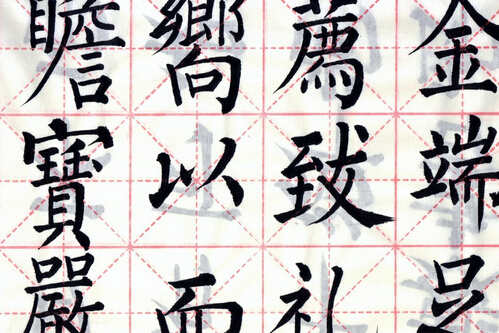 金端足
薦致礼
嚮以而
瞻寶嚴